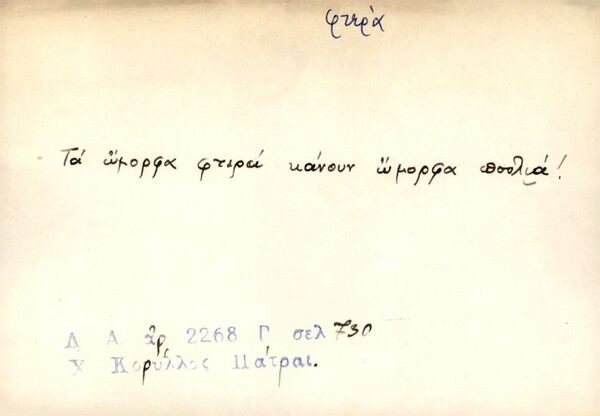 φτερὰ
Τά ὤμορφα φτερά κάνουν ὤμορφα πουλιά!
Λ Α ἀρ 2268 Γ σελ 730
Χ Κορύλλος Πάτραι.